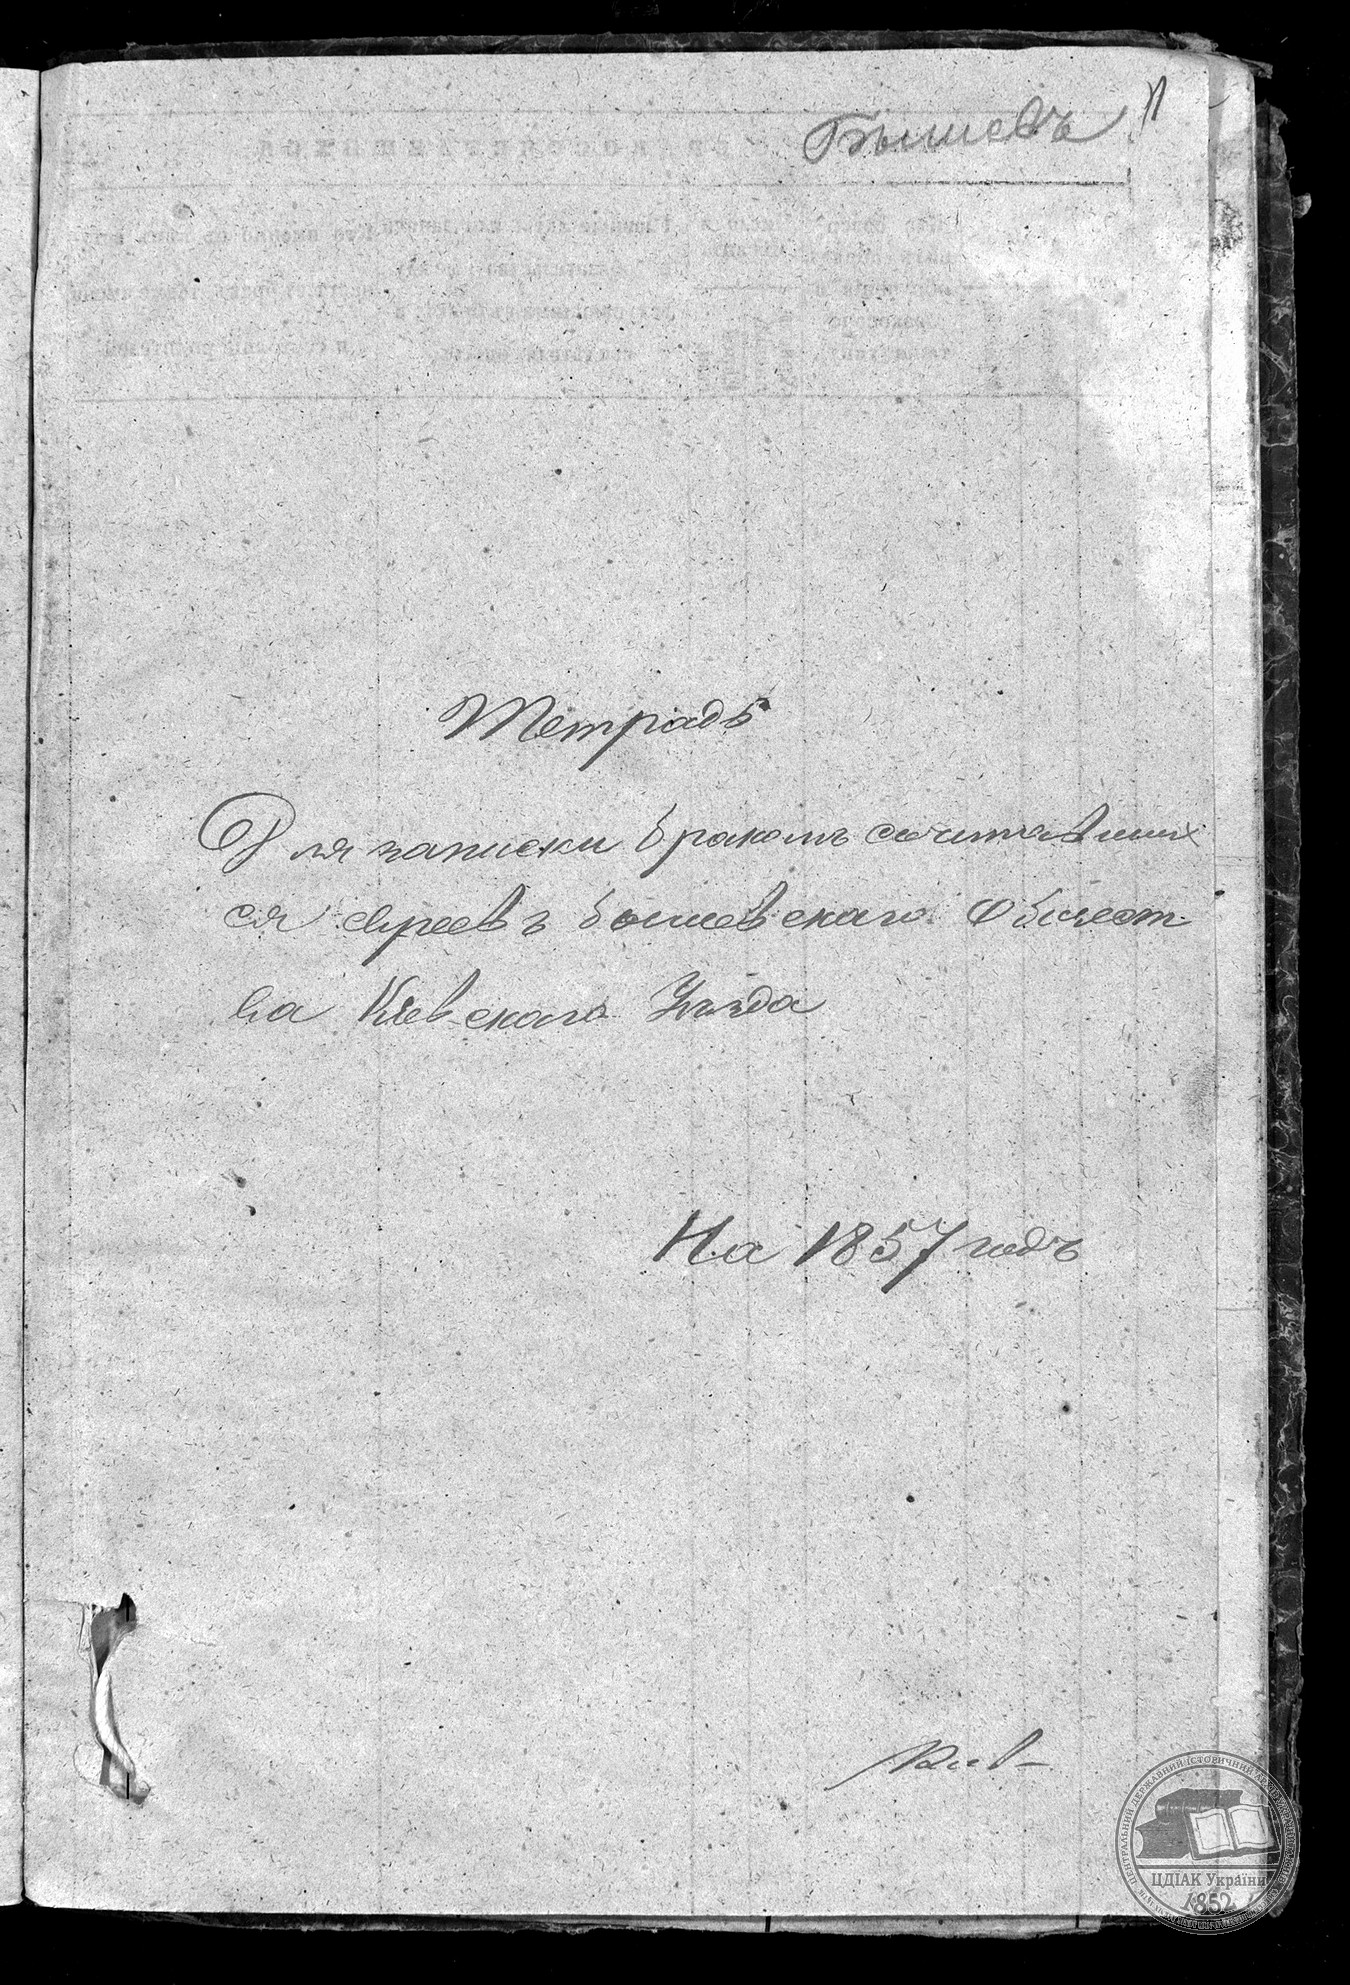 Бышевъ
Тетрадь
Для записки бракомъ сочитавших
ся евреевъ Бышевскаго Общест-
ва Кіевскаго Уѣзда
На 1857 годъ
Кіев-
ЦДІАК України
1852